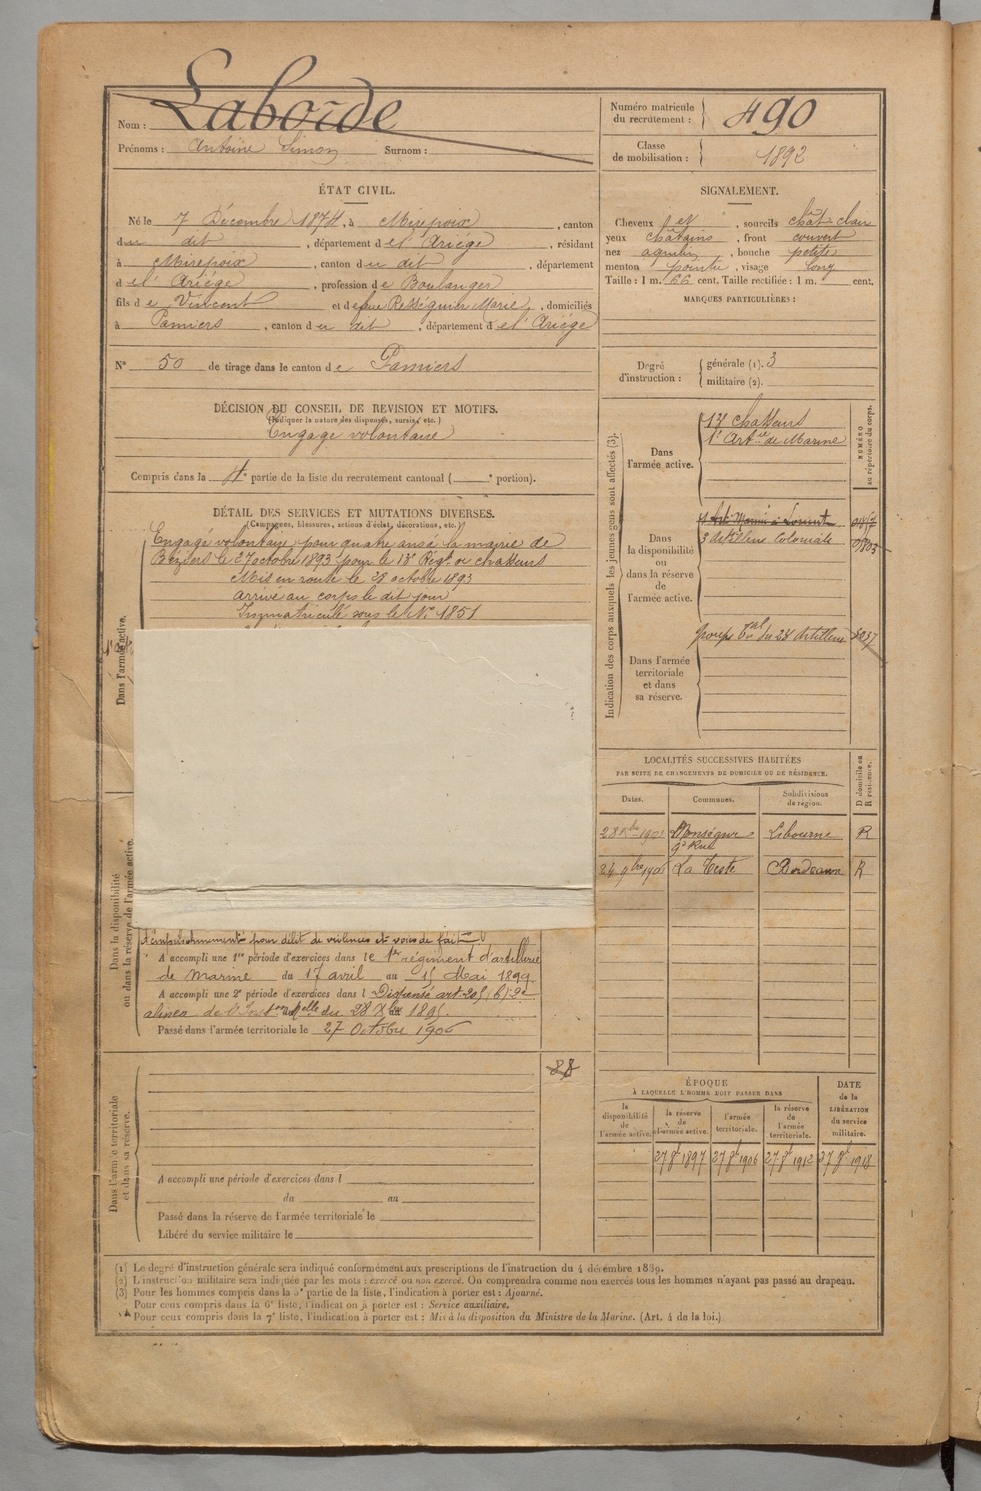 Nom : Laborde
Prénoms : Antoine Simon Surnom :
Numéro matricule du recrutement : 490
Classe de mobilisation : 1892
ÉTAT CIVIL.
Né le 7 Décembre 1874, à Mirepoix, canton
du dit, département de l'Ariège, résidant
à Mirepoix, canton du dit, département
de l'Ariège, profession de Boulanger
fils de Vincent et de feue Rességuier Marie, domiciliés
à Pamiers, canton du dit, département de l'Ariège
N° 50 de tirage dans le canton de Pamiers
SIGNALEMENT.
Cheveux, sourcils chât. clair
yeux châtains, front couvert
nez aquilin, bouche petite
menton pointu, visage long
Taille : 1 m. 66 cent. Taille rectifiée : 1 m. cent.
MARQUES PARTICULIÈRES :
Degré d'instruction : générale (1). 3
militaire (2).
DÉCISION DU CONSEIL DE REVISION ET MOTIFS.
(Indiquer la nature des dispenses, sursis, etc.)
Engagé volontaire
Compris dans la 4e partie de la liste du recrutement cantonal ( e portion).
DÉTAIL DES SERVICES ET MUTATIONS DIVERSES.
(Campagnes, blessures, actions d'éclat, décorations, etc.)
Dans l'armée active.
Engagé volontaire pour quatre ans à la mairie de
Béziers le 27 octobre 1893 pour le Régt de chasseurs
Mis en route le 28 octobre 1893
arrivé au corps le dit jour
Immatriculé sous le N° 1851
Dans la disponibilité ou dans la réserve de l'armée active.
d'emprisonnement pour délit de violences et voies de fait
A accompli une 1re période d'exercices dans le 1er régiment d'artillerie
de marine du 17 avril au 15 Mai 1899
A accompli une 2e période d'exercices dans l Dispensé art. 205 (b) 2e
alinéa de l'Inston Mlle du 28 Xbre 1895.
Passé dans l'armée territoriale le 27 Octobre 1906
88
Dans l'armée territoriale et dans sa réserve.
A accompli une période d'exercices dans l
du au
Passé dans la réserve de l'armée territoriale le
Libéré du service militaire le
Indication des corps auxquels les jeunes gens sont affectés (3).
NUMÉRO au répertoire du corps.
Dans l'armée active.
chasseurs
1er Artie de Marine
Dans la disponibilité ou dans la réserve de l'armée active.
Artie Marine à Lorient
3 Artillerie Coloniale
Dans l'armée territoriale et dans sa réserve.
groupe Tal du 28 Artillerie
LOCALITÉS SUCCESSIVES HABITÉES
PAR SUITE DE CHANGEMENTS DE DOMICILE OU DE RÉSIDENCE.
Dates. Communes. Subdivisions de région. D domicile ou R résidence.
Monségur Gde Rue Libourne R
24 9bre La Teste Bordeaux R
ÉPOQUE
À LAQUELLE L'HOMME DOIT PASSER DANS
la disponibilité de l'armée active.
la réserve de l'armée active.
l'armée territoriale.
la réserve de l'armée territoriale.
DATE de la LIBÉRATION du service militaire.
27 8bre 1897 27 8bre 1906 27 8bre 1912 27 8bre 1918
(1) Le degré d'instruction générale sera indiqué conformément aux prescriptions de l'instruction du 4 décembre 1889.
(2) L'instruction militaire sera indiquée par les mots : exercé ou non exercé. On comprendra comme non exercés tous les hommes n'ayant pas passé au drapeau.
(3) Pour les hommes compris dans la 5e partie de la liste, l'indication à porter est : Ajourné.
Pour ceux compris dans la 6e liste, l'indication à porter est : Service auxiliaire.
Pour ceux compris dans la 7e liste, l'indication à porter est : Mis à la disposition du Ministre de la Marine. (Art. 4 de la loi.)